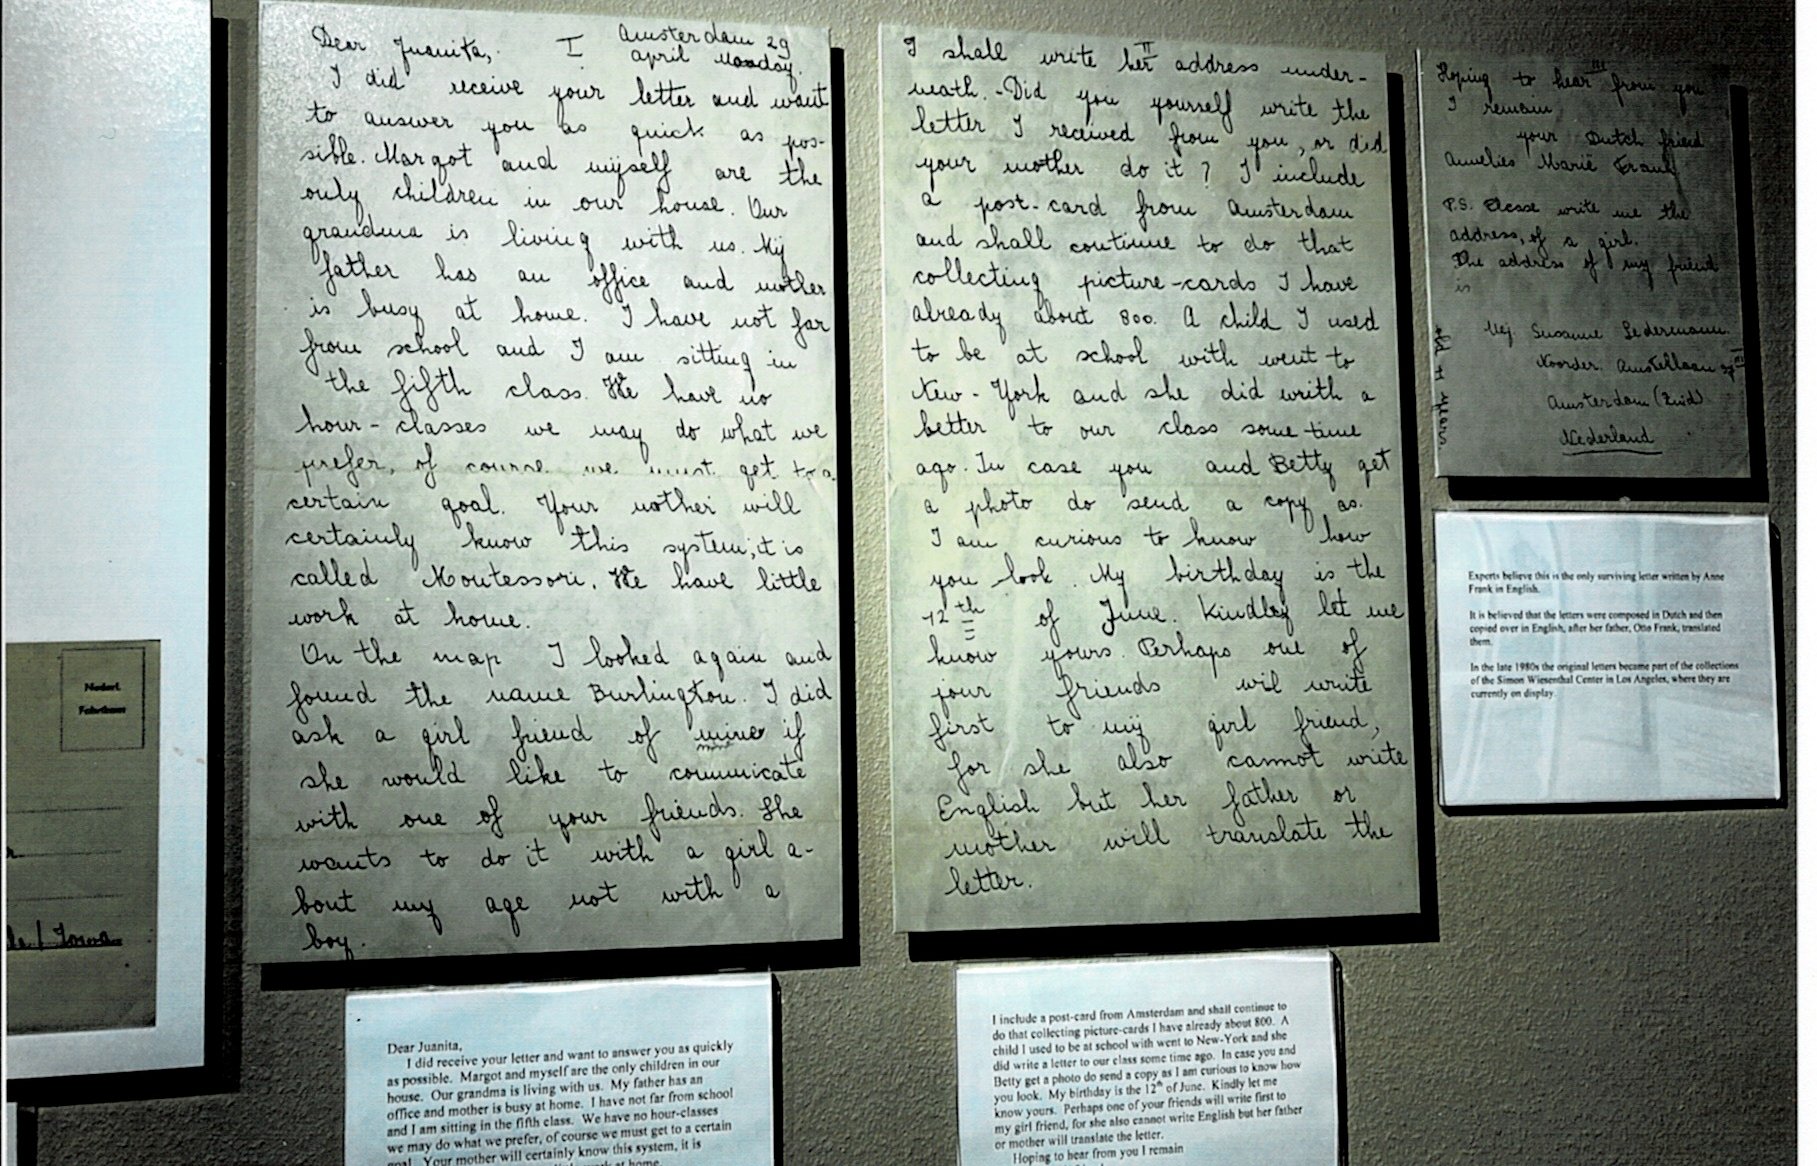 Nederl.
Fabrikaat
Iowa
Dear Juanita, I Amsterdam 29
april Monday.
I did receive your letter and want
to answer you as quick as pos-
sible. Margot and myself are the
only children in our house. Our
grandma is living with us. My
father has an office and mother
is busy at home. I have not far
from school and I am sitting in
the fifth class. We have no
hour-classes we may do what we
prefer, of course we must get to a
certain goal. Your mother will
certainly know this system, it is
called Montessori. We have little
work at home.
On the map I looked again and
found the name Burlington. I did
ask a girl friend of mine if
she would like to communicate
with one of your friends. She
wants to do it with a girl a-
bout my age not with a
boy.
II
I shall write her address under-
neath. - Did you yourself write the
letter I received from you, or did
your mother do it? I include
a post-card from Amsterdam
and shall continue to do that
collecting picture-cards I have
already about 800. A child I used
to be at school with went to
New-York and she did writh a
better to our class some time
ago. In case you and Betty get
a photo do send a copy as.
I am curious to know how
you look. My birthday is the
12th of June. Kindley let me
know yours. Perhaps one of
jour friends wil write
first to my girl friend,
for she also cannot write
English but her father or
mother will translate the
letter.
III
Hoping to hear from you
I remain
your Dutch friend
Annelies Marie Frank
P.S. Please write me the
address, of a girl.
The address of my friend
is
Susanne Ledermann
Noorder Amstellaan 37 III
Amsterdam (Zuid)
Nederland
Dear Juanita,
I did receive your letter and want to answer you as quickly
as possible. Margot and myself are the only children in our
house. Our grandma is living with us. My father has an
office and mother is busy at home. I have not far from school
and I am sitting in the fifth class. We have no hour-classes
we may do what we prefer, of course we must get to a certain
goal. Your mother will certainly know this system, it is
work at home
I include a post-card from Amsterdam and shall continue to
do that collecting picture-cards I have already about 800. A
child I used to be at school with went to New-York and she
did write a letter to our class some time ago. In case you and
Betty get a photo do send a copy as I am curious to know how
you look. My birthday is the 12th of June. Kindly let me
know yours. Perhaps one of your friends will write first to
my girl friend, for she also cannot write English but her father
or mother will translate the letter.
Hoping to hear from you I remain
Experts believe this is the only surviving letter written by Anne
Frank in English.
It is believed that the letters were composed in Dutch and then
copied over in English, after her father, Otto Frank, translated
them.
In the late 1980s the original letters became part of the collections
of the Simon Wiesenthal Center in Los Angeles, where they are
currently on display.